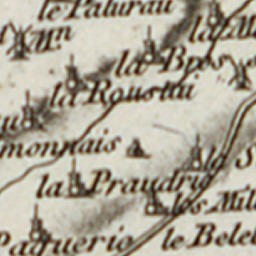 le Paturau
Mn
la M
la Bros
la Roussui
monnais
la S
la Praudrie
les Mil
Paquerie le Belet